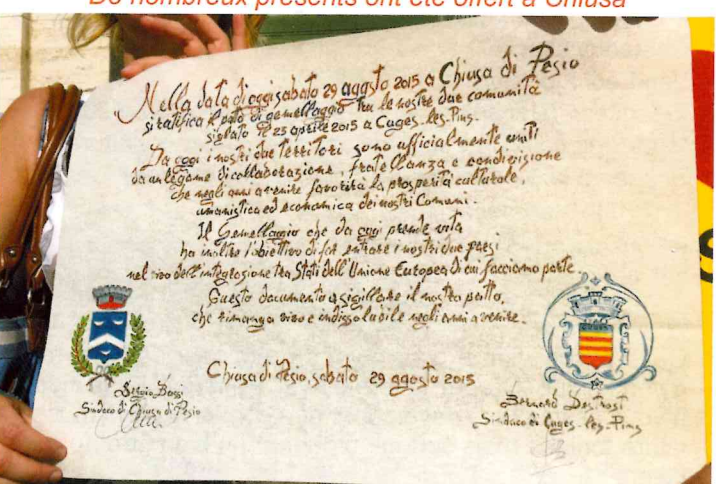 De nombreux présents ont été offert à Chiusa
Nella data di oggi sabato 29 agosto 2015 a Chiusa di Pesio
si ratifica il patto di gemellaggio tra le nostre due comunità
siglato il 25 aprile 2015 a Cuges-les-Pins.
Da oggi i nostri due territori sono ufficialmente uniti
da un legame di collaborazione, fratellanza e condivisione
che negli anni a venire favorirà la prosperità culturale,
umanistica ed economica dei nostri Comuni.
Il Gemellaggio che da oggi prende vita
ha inoltre l'obiettivo di far entrare i nostri due paesi
nel vivo dell'integrazione tra Stati dell'Unione Europea di cui facciamo parte
Questo documento a sigillare il nostro patto,
che rimanga vivo e indissolubile negli anni a venire.
Chiusa di Pesio, sabato 29 agosto 2015
Sergio Bossi
Sindaco di Chiusa di Pesio
Bernard Destrost
Sindaco di Cuges-les-Pins